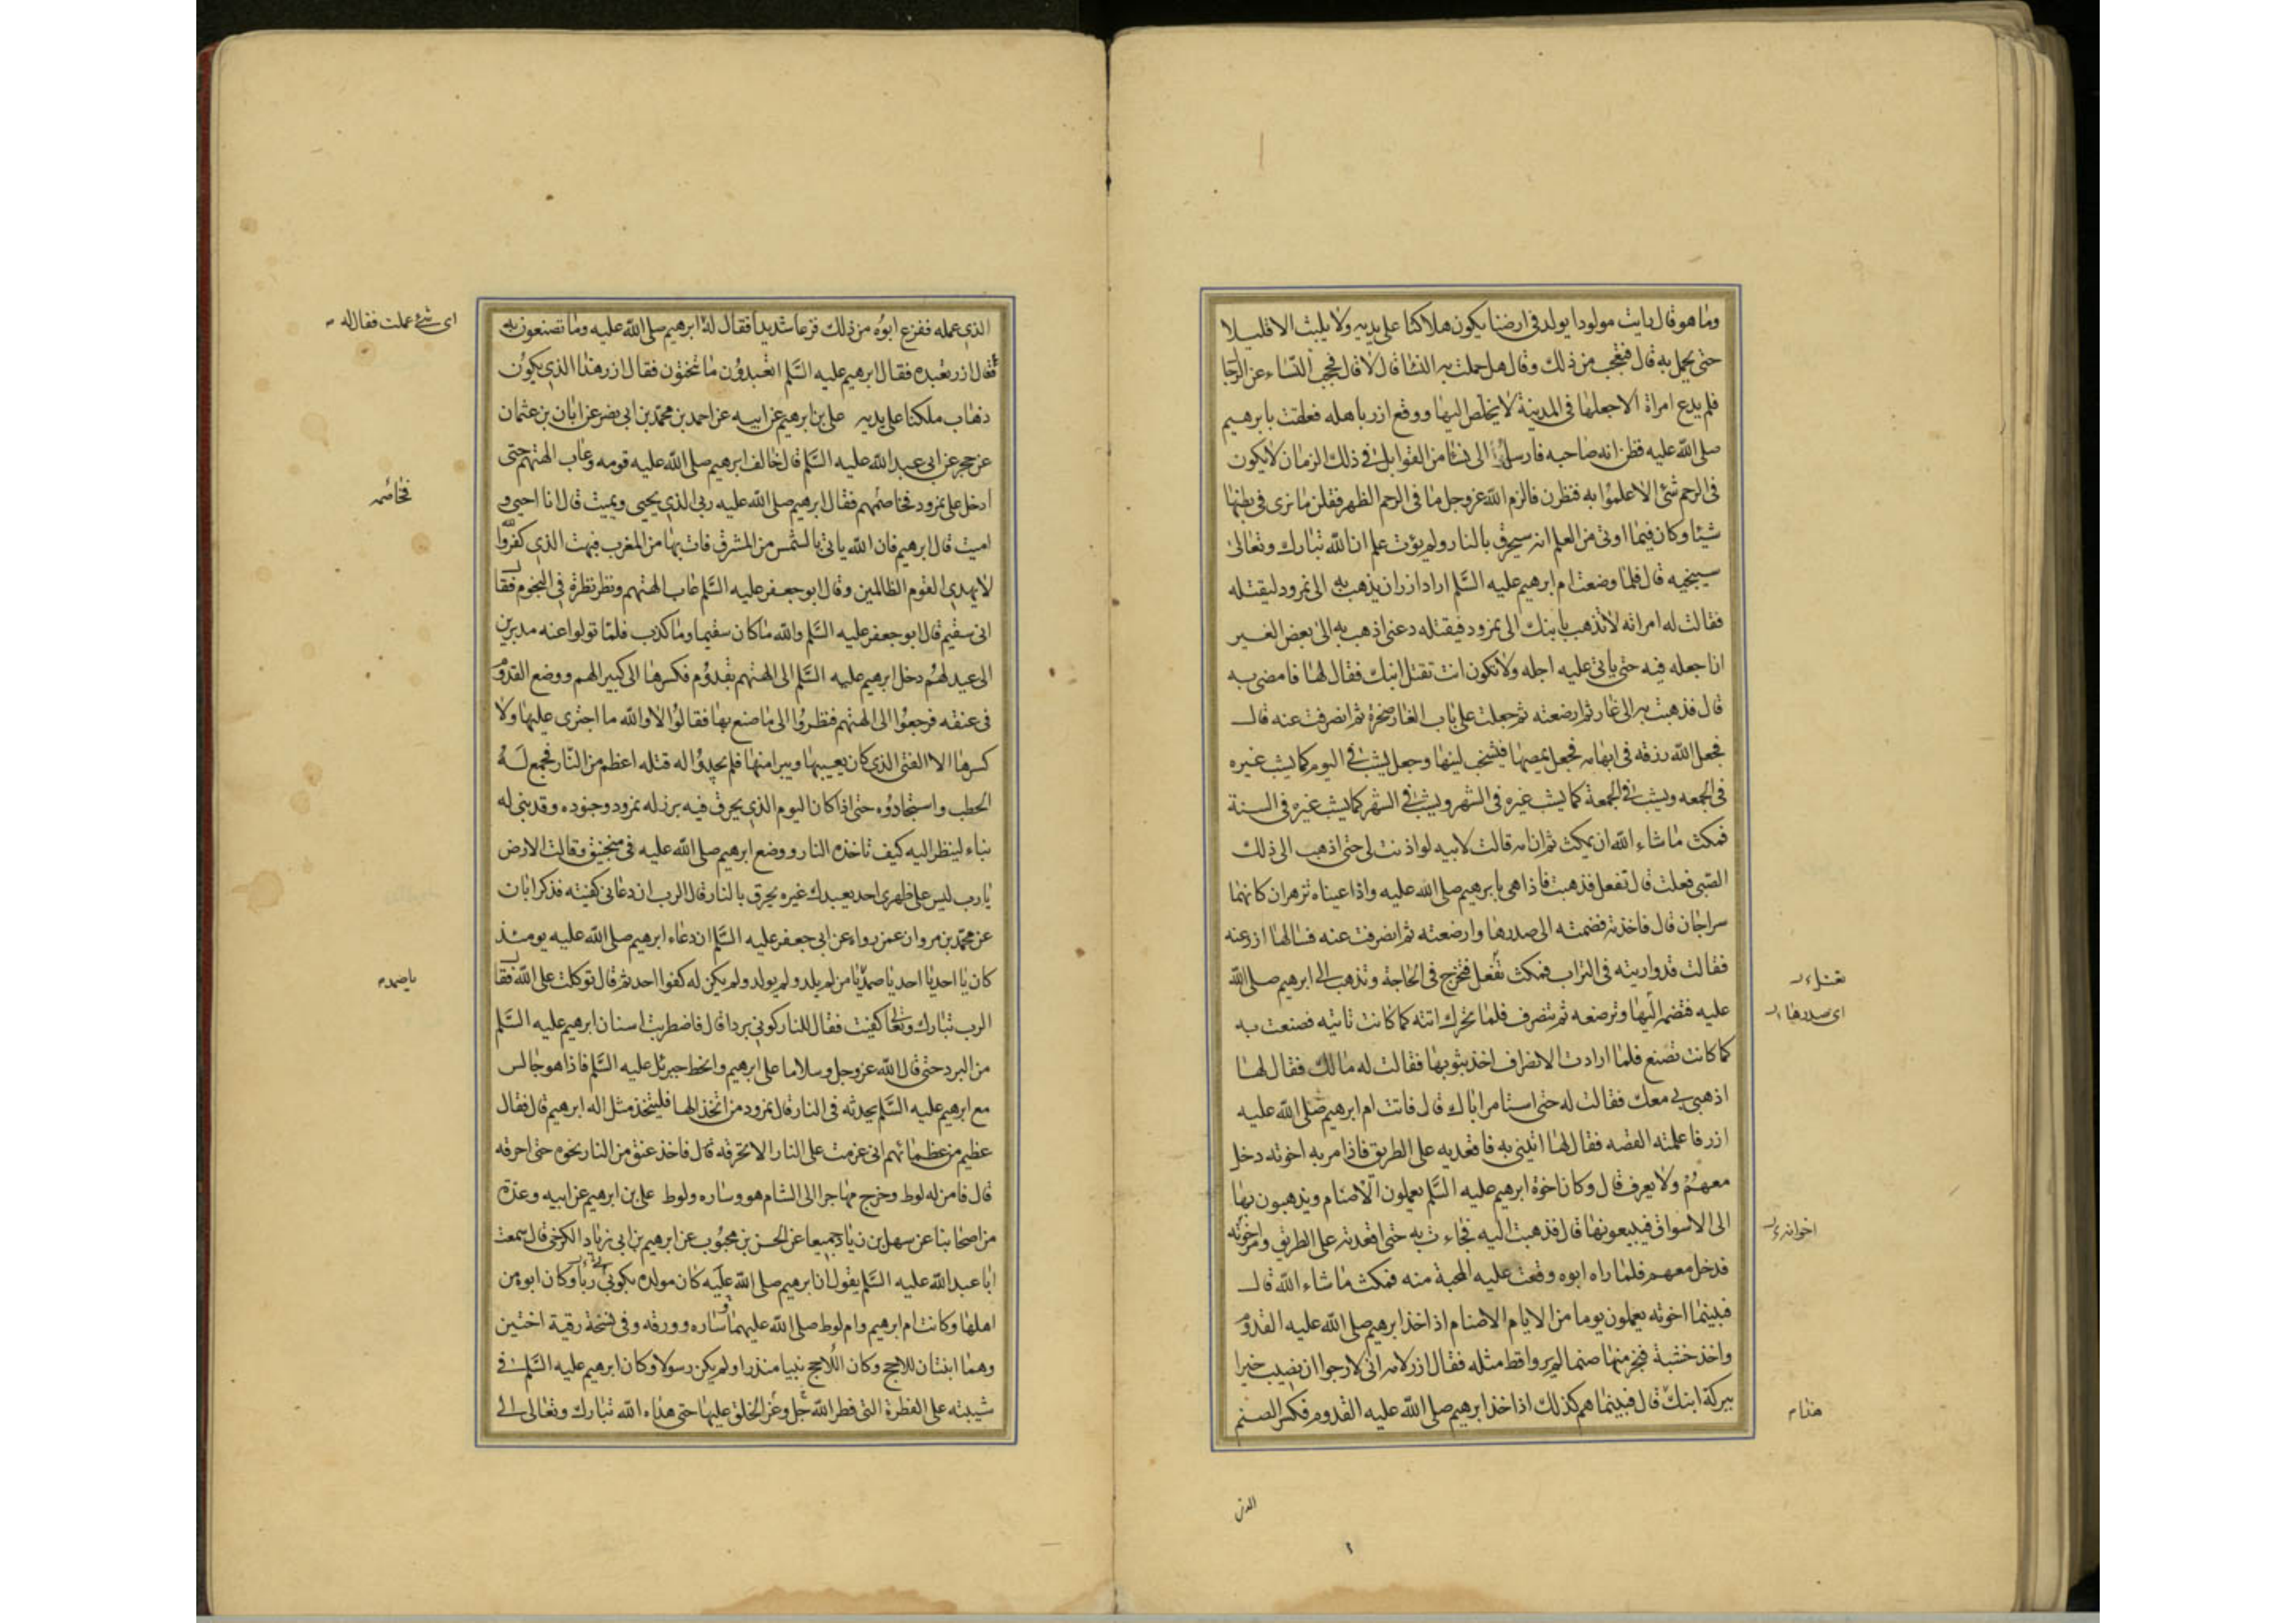 وما هو قال رايت مولودا يولد فى ارضنا يكون هلاكنا على يديه ولا يلبث الا قليلا
حتى يحمل به قال فتعجب من ذلك وقال هل حملت به النسا قال لا قال فحجب النساء عن الرجا
فلم يدع امراة الا جعلها فى المدينة لا يخلص اليها ووقع ازر باهله فعلقت بابرهيم
صلى الله عليه فظن انه صاحبه فارسل الى نسا من القوابل فى ذلك الزمان لا يكون
فى الرحم شئ الا علموا به فنظرن فالزم الله عز وجل ما فى الرحم الظهر فقلن ما نرى فى بطنها
شيئا وكان فيما اوتى من العلم انه سيحرق بالنار ولم يؤت علم ان الله تبارك وتعالى
سينجيه قال فلما وضعت ام ابرهيم عليه السلم اراد ازر ان يذهب به الى نمرود ليقتله
فقالت له امراته لا تذهب بابنك الى نمرود فيقتله دعنى اذهب به الى بعض الغير
انا جعله فيه حتى ياتى عليه اجله ولا تكون انت تقتل ابنك فقال لها فامضى به
قال فذهبت به الى غار ثم ارضعته ثم جعلت على باب الغار صخرة ثم انصرفت عنه قال
فجعل الله رزقه فى ابهامه فجعل يمصها فيشخب لبنها وجعل يشب فى اليوم كما يشب غيره
فى الجمعه ويشب فى الجمعة كما يشب غيره فى الشهر ويشب فى الشهر كما يشب غيره فى السنة
فمكث ما شاء الله ان يمكث ثم ان امه قالت لابيه لو اذنت لى حتى اذهب الى ذلك
الصبى فعلت قال تفعل فذهبت فاذا هى بابرهيم صلى الله عليه واذا عيناه تزهران كانهما
سراجان قال فاخذته فضمته الى صدرها وارضعته ثم انصرفت عنه فسالها ازر عنه
فقالت قد واريته فى التراب فمكث تفعل فتخرج فى الحاجة وتذهب الى ابرهيم صلى الله
تعتل
عليه فتضمه اليها وترضعه ثم تنصرف فلما تحرك اتته كما كانت تاتيه فصنعت به
اى صدرها
كما كانت تصنع فلما ارادت الانصراف اخذ بثوبها فقالت له مالك فقال لها
اذهبى بى معك فقالت له حتى استامر اباك قال فاتت ام ابرهيم صلى الله عليه
ازر فاعلمته القصه فقال لها ائتينى به فاقعديه على الطريق فاذا مر به اخوته دخل
معهم ولا يعرف قال وكان اخوة ابرهيم عليه السلم يعملون الاصنام ويذهبون بها
الى الاسواق فيبيعونها قال فذهبت اليه فجاءت به حتى اقعدته على الطريق ومر اخوته
اخوانه
فدخل معهم فلما راه ابوه وقعت عليه المحبة منه فمكث ما شاء الله قال
فبينما اخوته يعملون يوما من الايام الاصنام اذ اخذ ابرهيم صلى الله عليه القدوم
واخذ خشبة فنجر منها صنما لم يروا قط مثله فقال ازر لامه انى لارجوا ان نصيب خيرا
ببركة ابنك قال فبينما هم كذلك اذا خذ ابرهيم صلى الله عليه القدوم فكسر الصنم
هذا
الذى
الذى عمله ففزع ابوه من ذلك فزعا شديدا فقال له ابرهيم صلى الله عليه وما تصنعون به
اى شئ عملت فقال له
فقال ازر نعبده فقال ابرهيم عليه السلم اتعبدون ما تنحتون فقال ازر هذا الذى يكون
ذهاب ملكنا على يديه على بن ابرهيم عن ابيه عن احمد بن محمد بن ابى نصر عن ابان بن عثمان
عن حجر عن ابى عبد الله عليه السلم قال خالف ابرهيم صلى الله عليه قومه وعاب الهتهم حتى
ادخل على نمرود فخاصمهم فقال ابرهيم صلى الله عليه ربى الذى يحيى ويميت قال انا احيى و
فخاصمه
اميت قال ابرهيم فان الله ياتى بالشمس من المشرق فات بها من المغرب فبهت الذى كفر والله
لا يهدى القوم الظالمين وقال ابو جعفر عليه السلم عاب الهتهم ونظر نظرة فى النجوم فقال
انى سقيم قال ابو جعفر عليه السلم والله ما كان سقيما وما كذب فلما تولوا عنه مدبرين
الى عيد لهم دخل ابرهيم عليه السلم الى الهتهم بقدوم فكسرها الى كبيرا لهم ووضع القدوم
فى عنقه فرجعوا الى الهتهم فنظروا الى ما صنع بها فقالوا لا والله ما اجترى عليها ولا
كسرها الا الفتى الذى كان يعيبها ويبرا منها فلم يجدوا له قتله اعظم من النار فجمع له
الحطب واستجادوه حتى اذا كان اليوم الذى يحرق فيه برز له نمرود وجنوده وقد بنى له
بناء لينظر اليه كيف تاخذه النار ووضع ابرهيم صلى الله عليه فى منجنيق وقالت الارض
يا رب ليس على ظهرى احد يعبدك غيره يحرق بالنار قال الرب ان دعانى كفيته فذكر ابان
عن محمد بن مروان عمن رواه عن ابى جعفر عليه السلم ان دعاء ابرهيم صلى الله عليه يومئذ
كان يا احد يا احد يا صمد يا من لم يلد ولم يولد ولم يكن له كفوا احد ثم قال توكلت على الله فقال
يا صمد
الرب تبارك وتعالى كفيت فقال للنار كونى بردا قال فاضطربت اسنان ابرهيم عليه السلم
من البرد حتى قال الله عز وجل وسلاما على ابرهيم وانحط جبرئل عليه السلم فاذا هو جالس
مع ابرهيم عليه السلم يحدثه فى النار قال نمرود من اتخذ الها فليتخذ مثل اله ابرهيم قال فقال
عظيم من عظمائهم انى عزمت على النار الا تحرقه قال فاخذ عنق من النار نحوه حتى احرقه
قال فامن له لوط وخرج مهاجرا الى الشام هو وساره ولوط على بن ابرهيم عن ابيه وعدة
من اصحابنا عن سهل بن زياد جميعا عن الحسن بن محبوب عن ابرهيم بن ابى زياد الكرخى قال سمعت
ابا عبد الله عليه السلم يقول ان ابرهيم صلى الله عليه كان مولده بكوثى ربا وكان ابوه من
اهلها وكانت ام ابرهيم وام لوط صلى الله عليهما ساره وورقه وفى نسخة رقية اختين
وهما ابنتان للاحج وكان اللاحج نبيا منذرا ولم يكن رسولا وكان ابرهيم عليه السلم فى
شيبته على الفطرة التى فطر الله جل وعز الخلق عليها حتى هداه الله تبارك وتعالى الى